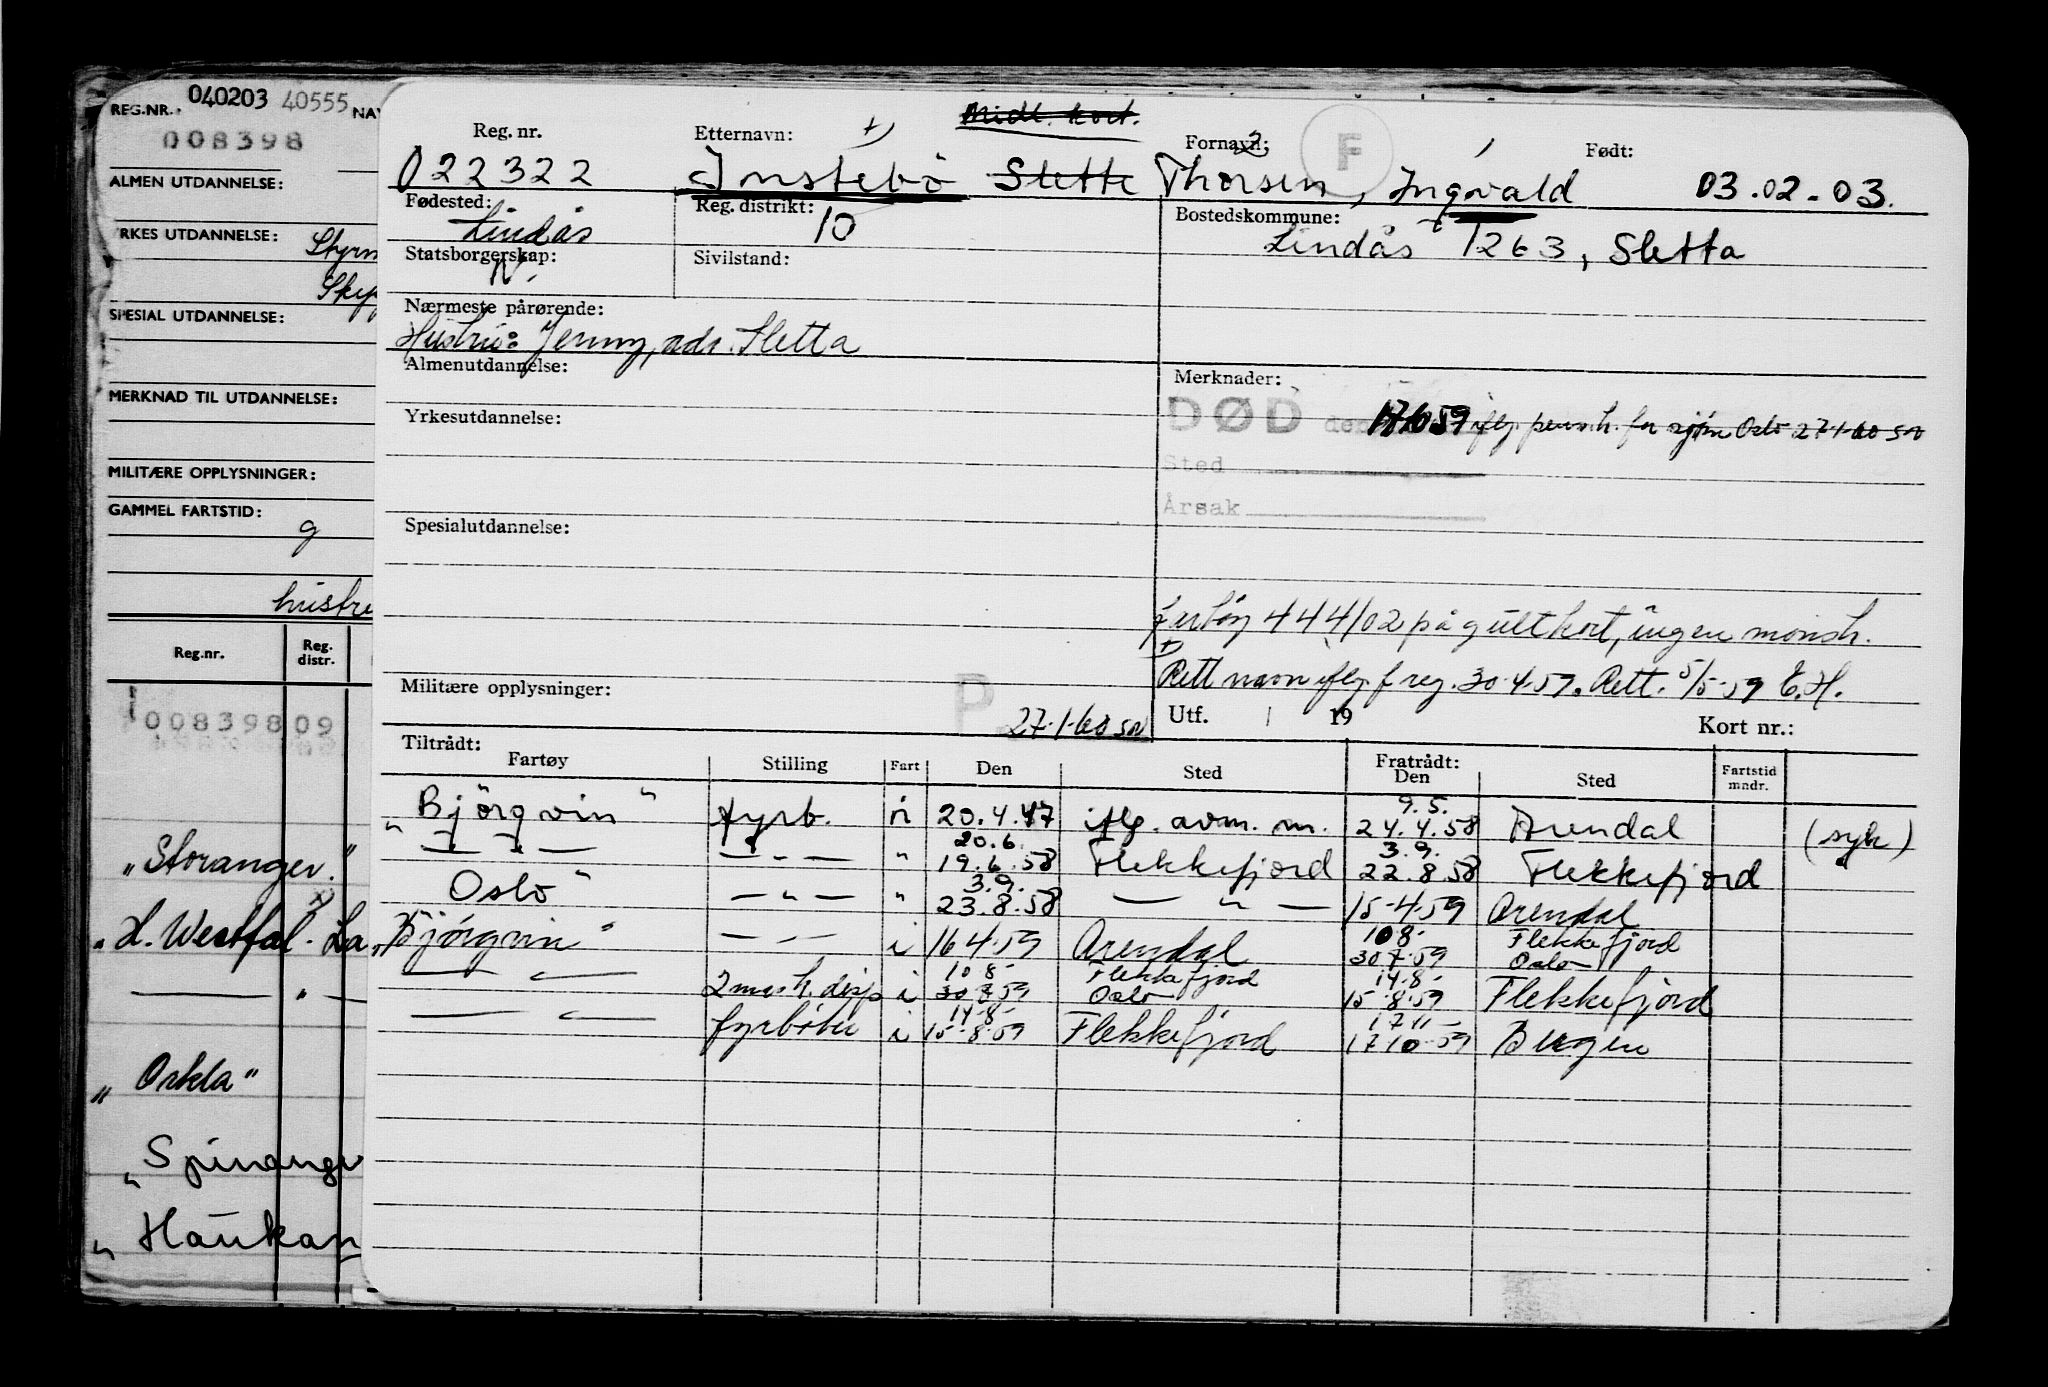 REG.NR. 040203 40555 NAV
008398
ALMEN UTDANNELSE:
YRKES UTDANNELSE: Styrm
Skip
SPESIAL UTDANNELSE:
MERKNAD TIL UTDANNELSE:
MILITÆRE OPPLYSNINGER:
GAMMEL FARTSTID:
g
hustru
Reg.nr. Reg. distr.
00839809
"Storanger"
"H. Westfal-La
— " —
"Orkla"
"Spinanger
"Haukan
Midl. kort.
Reg. nr. Etternavn: +) Fornavn: 2 F Født:
022322 Instebö Slette Thorsen, Ingvald 03.02-03.
Fødested: Reg. distrikt: Bostedskommune:
Lindås 10 Lindås 1263, Sletta
Statsborgerskap: Sivilstand:
N.
Nærmeste pårørende:
Hustru: Jenny, adr. Sletta
Almenutdannelse: Merknader:
Yrkesutdannelse: DØD den 17/10 59 iflg. pensh. for sjøm Oslo 27-1-60 sn
Sted
Årsak
Spesialutdannelse:
fartöy 444/02 på gult kort, ingen mönstr.
+ Rett navn iflg. f reg. 30-4-59. Rett. 5/5-59 E.H.
Militære opplysninger: P 27-1-60 sn Utf. 19 Kort nr.:
Tiltrådt: Fratrådt:
Fartøy Stilling Fart Den Sted Den Sted Fartstid mndr.
9.5.
"Björgvin" fyrb. i 20.4.47 iflg. avm. m. 24.4.58 Arendal (syk)
20.6. 3.9.
— " — — " — " 19.6.58 Flekkefjord 22.8.58 Flekkefjord
3.9.
"Oslo" — " — " 23.8.58 — " — 15-4-59 Arendal
108- Flekkefjord
"Björgvin" — " — i 16-4-59 Arendal 30-7-59 Oslo
10 8- Flekkefjord 14-8-
— " — 2 mask. disp i 30 7 59 Oslo 15-8-59 Flekkefjord
14-8- 17 11-
— " — fyrböter i 15-8-59 Flekkefjord 17-10-59 Bergen